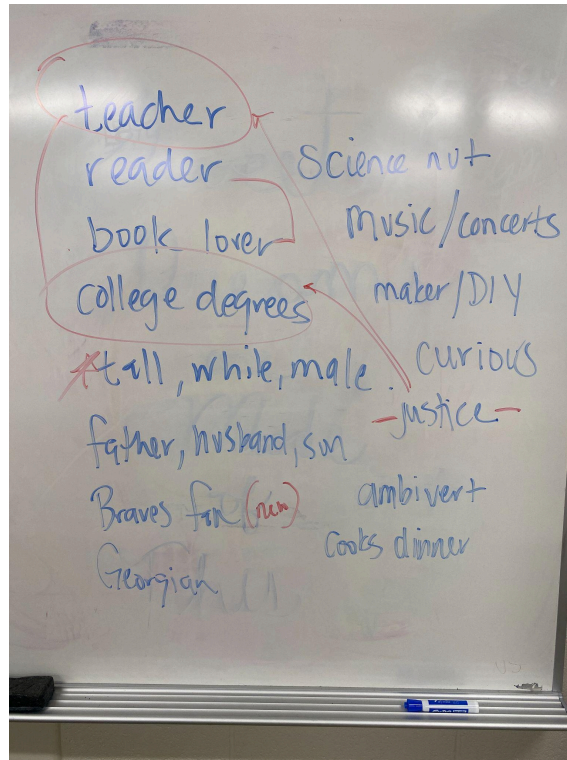 teacher
reader
book lover
college degrees
*tall, while, male.
father, husband, son
Braves fan (new)
Georgian
Science nut
Music/concerts
maker/DIY
curious
-justice-
ambivert
cooks dinner